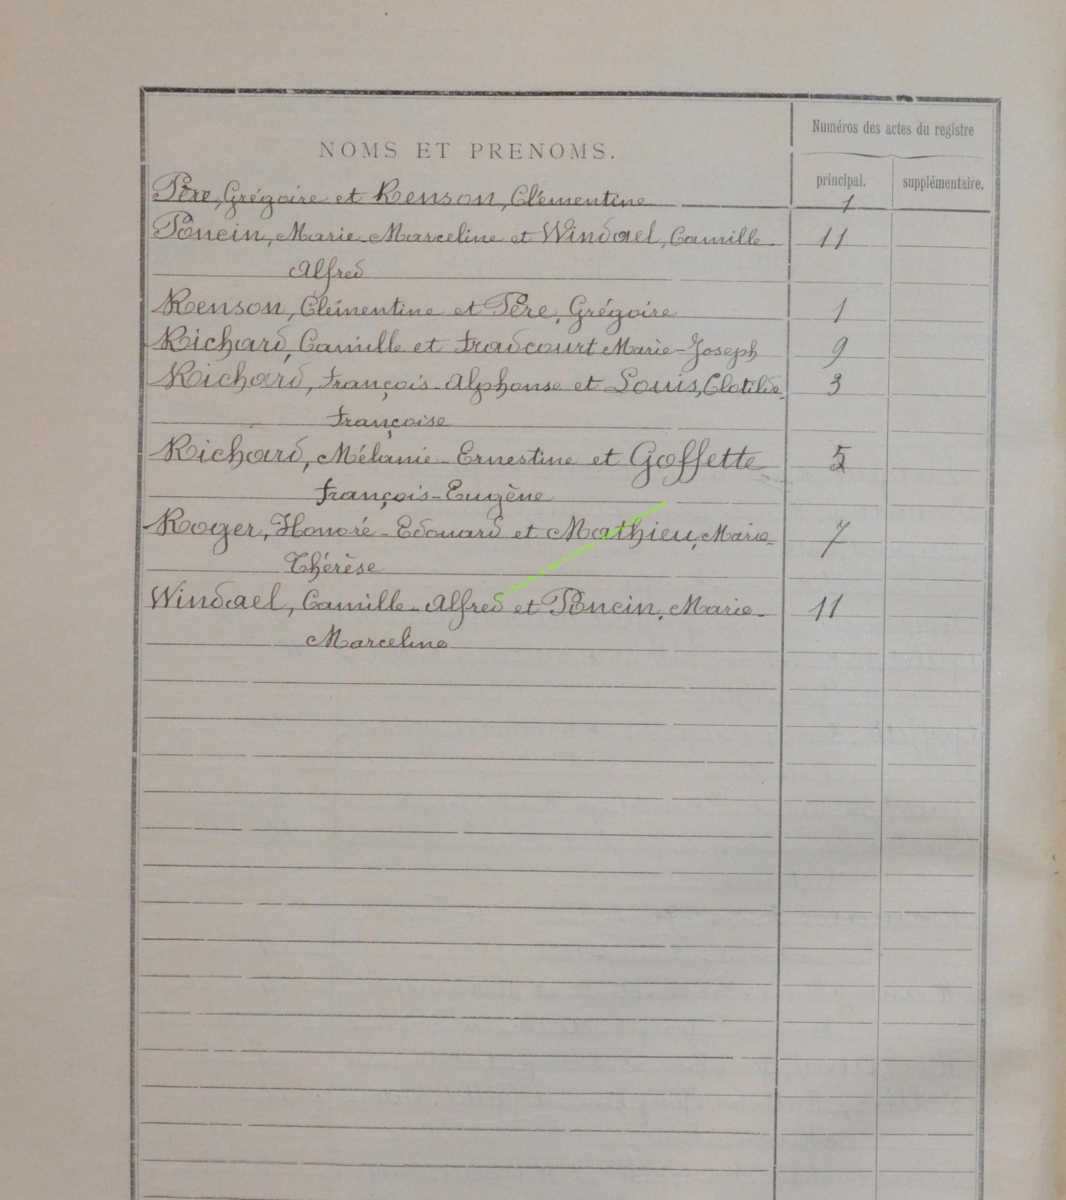 Numéros des actes du registre
NOMS ET PRENOMS.
principal.
supplémentaire.
Père, Grégoire et Renson, Clémentine 1
Poncin, Marie-Marceline et Windael, Camille- 11
Alfred
Renson, Clémentine et Père, Grégoire 1
Richard, Camille et Fradcourt Marie-Joseph 9
Richard, François-Alphonse et Louis, Clotilde- 3
Françoise
Richard, Mélanie-Ernestine et Goffette 5
François-Eugène
Roger, Honoré-Edouard et Mathieu, Marie- 7
Thérèse
Windael, Camille-Alfred et Poncin, Marie- 11
Marceline